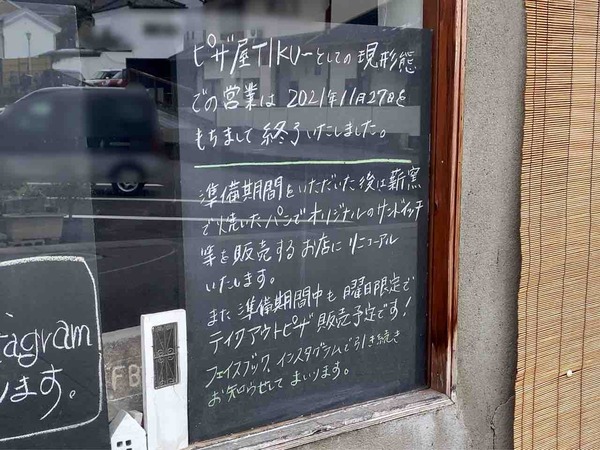 ピザ屋TIKU-としての現形態
での営業は2021年11月27日を
もちまして終了いたしました。
準備期間をいただいた後は薪窯
で焼いたパンでオリジナルのサンドイッチ
等を販売するお店にリニューアル
いたします。
また準備期間中も曜日限定で
テイクアウトピザ販売予定です!
フェイスブック、インスタグラムで引き続き
お知らせしてまいります。
agram
します。
FB